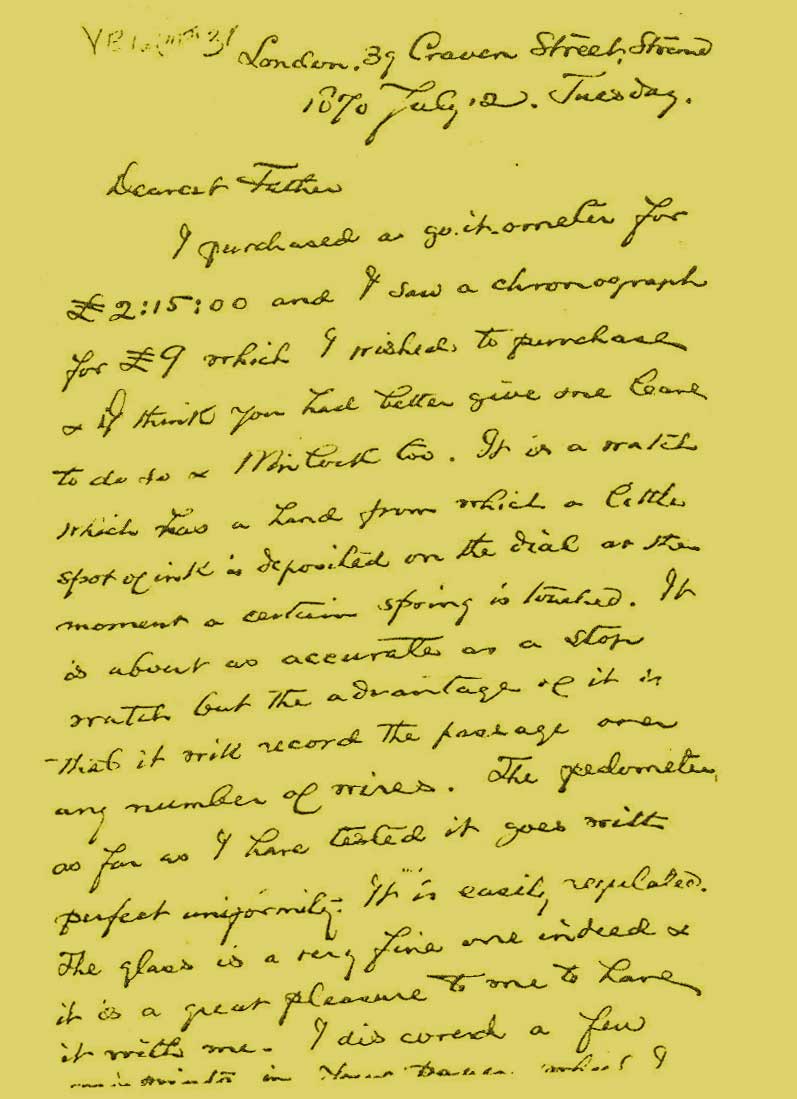 London. 39 Craven Street, Strand
1870 July 12. Tuesday.
Dearest Father
I purchased a go-it-ometer for
£2:15:00 and I saw a chronograph
for £9 which I wished to purchase
& I think you had better give me leave
to do so & Winlock too. It is a watch
which has a hand from which a little
spot of ink is deposited on the dial at the
moment a certain spring is touched. It
is about as accurate as a stop
watch but the advantage of it is
that it will record the passage over
any number of wires. The pedometer,
as far as I have tested it goes with
perfect uniformity. It is easily regulated.
The glass is a very fine one indeed &
it is a great pleasure to me to have
it with me. I discovered a few
in which I